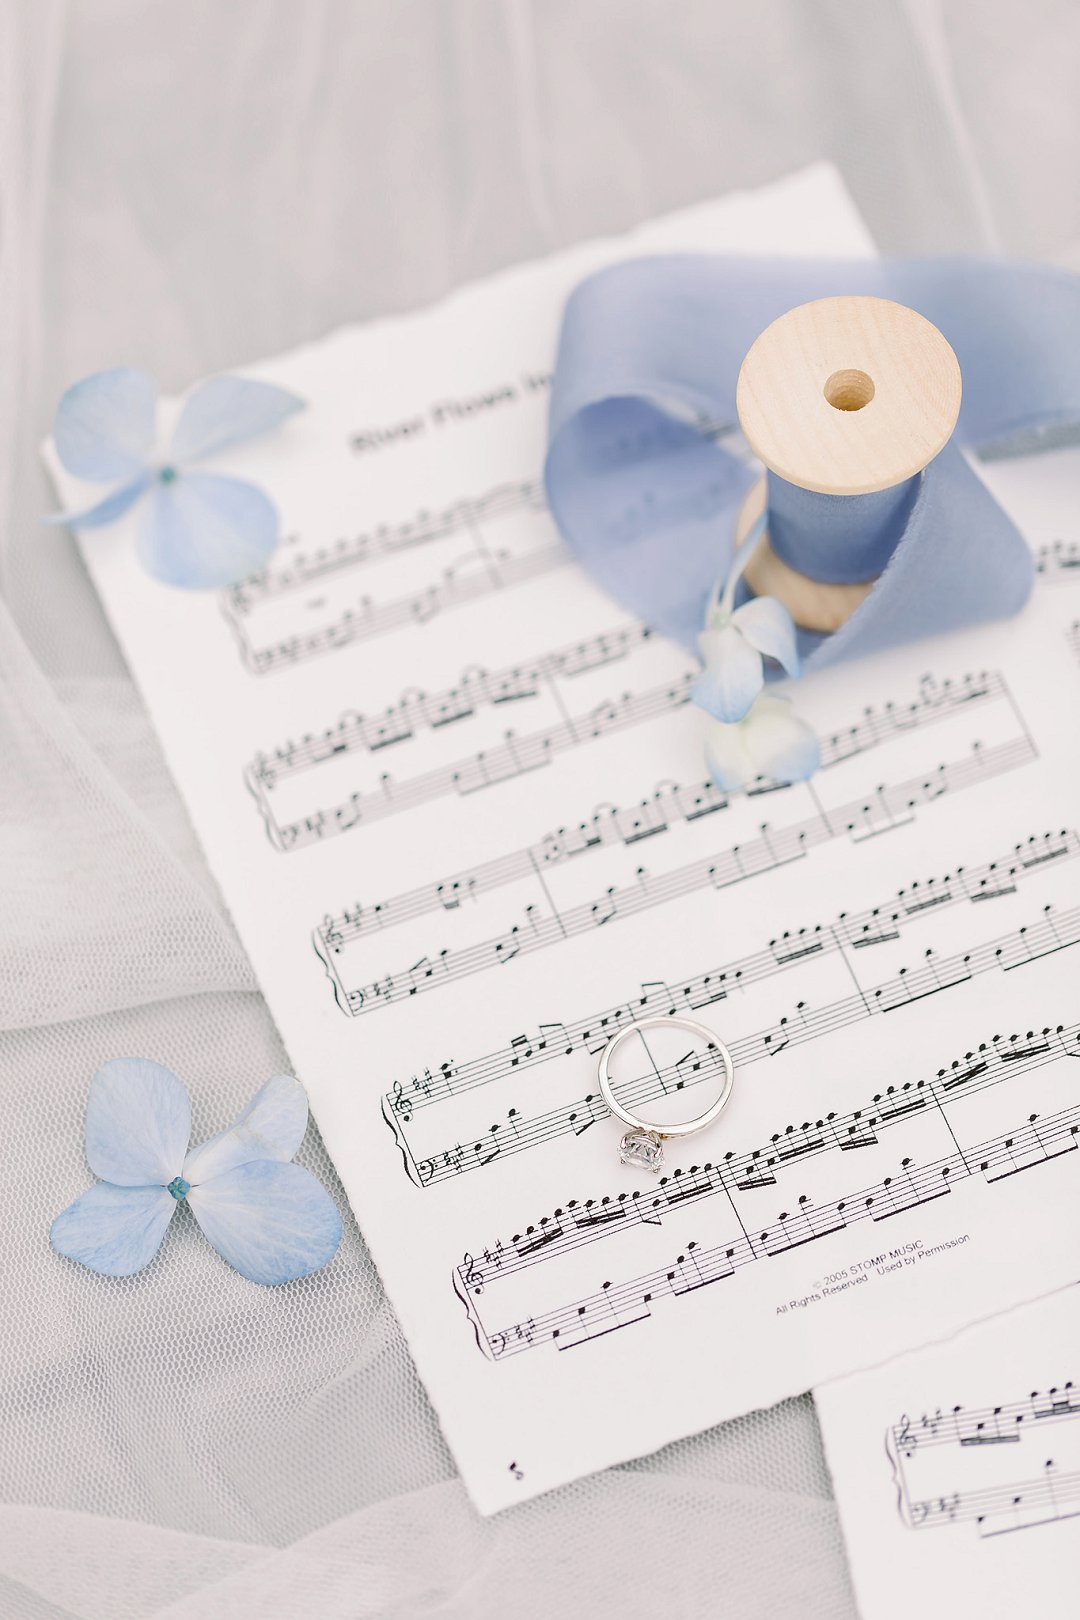 River Flows in
© 2005 STOMP MUSIC
All Rights Reserved Used by Permission
8